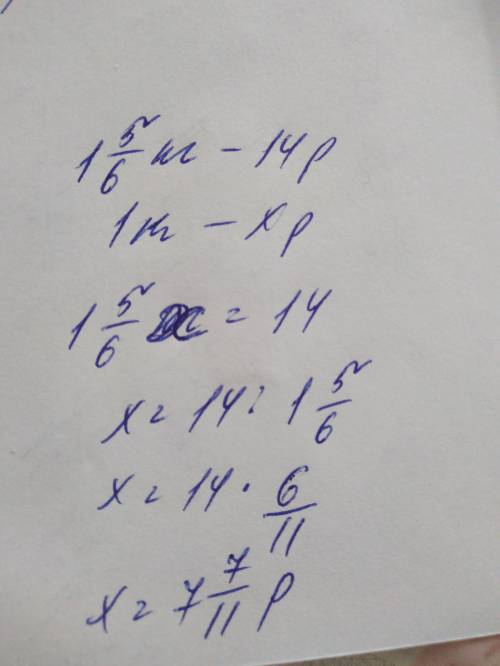 1 5/6 кг - 14 р
1 кг - x р
1 5/6 x = 14
x = 14 : 1 5/6
x = 14 · 6/11
x = 7 7/11 р